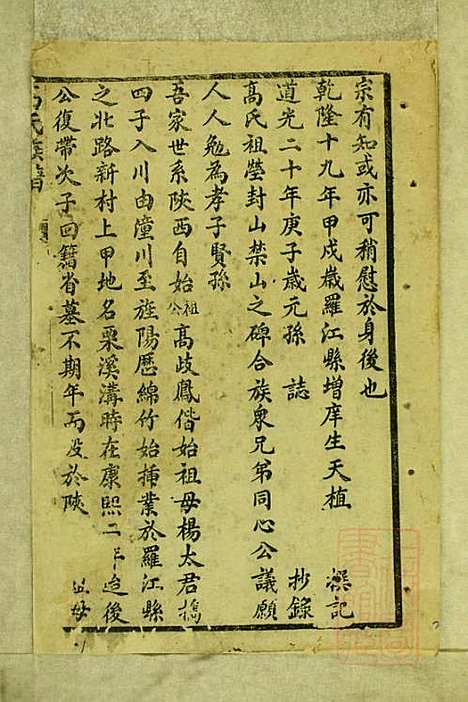 宗有知或亦可稍慰於身後也
乾隆十九年甲戌歲羅江縣增庠生天植 撰記
道光二十年庚子歲元孫 誌 抄錄
高氏祖塋封山禁山之碑合族衆兄弟同心公議願
人人勉為孝子賢孫
吾家世系陝西自始祖公高歧鳳偕始祖母楊太君携
四子入川由潼川至旌陽歷綿竹始揷業於羅江縣
之北路新村上甲地名栗溪溝時在康熙二年迨後
公復帶次子回籍省墓不期年而没於陝 祖母
高氏族譜